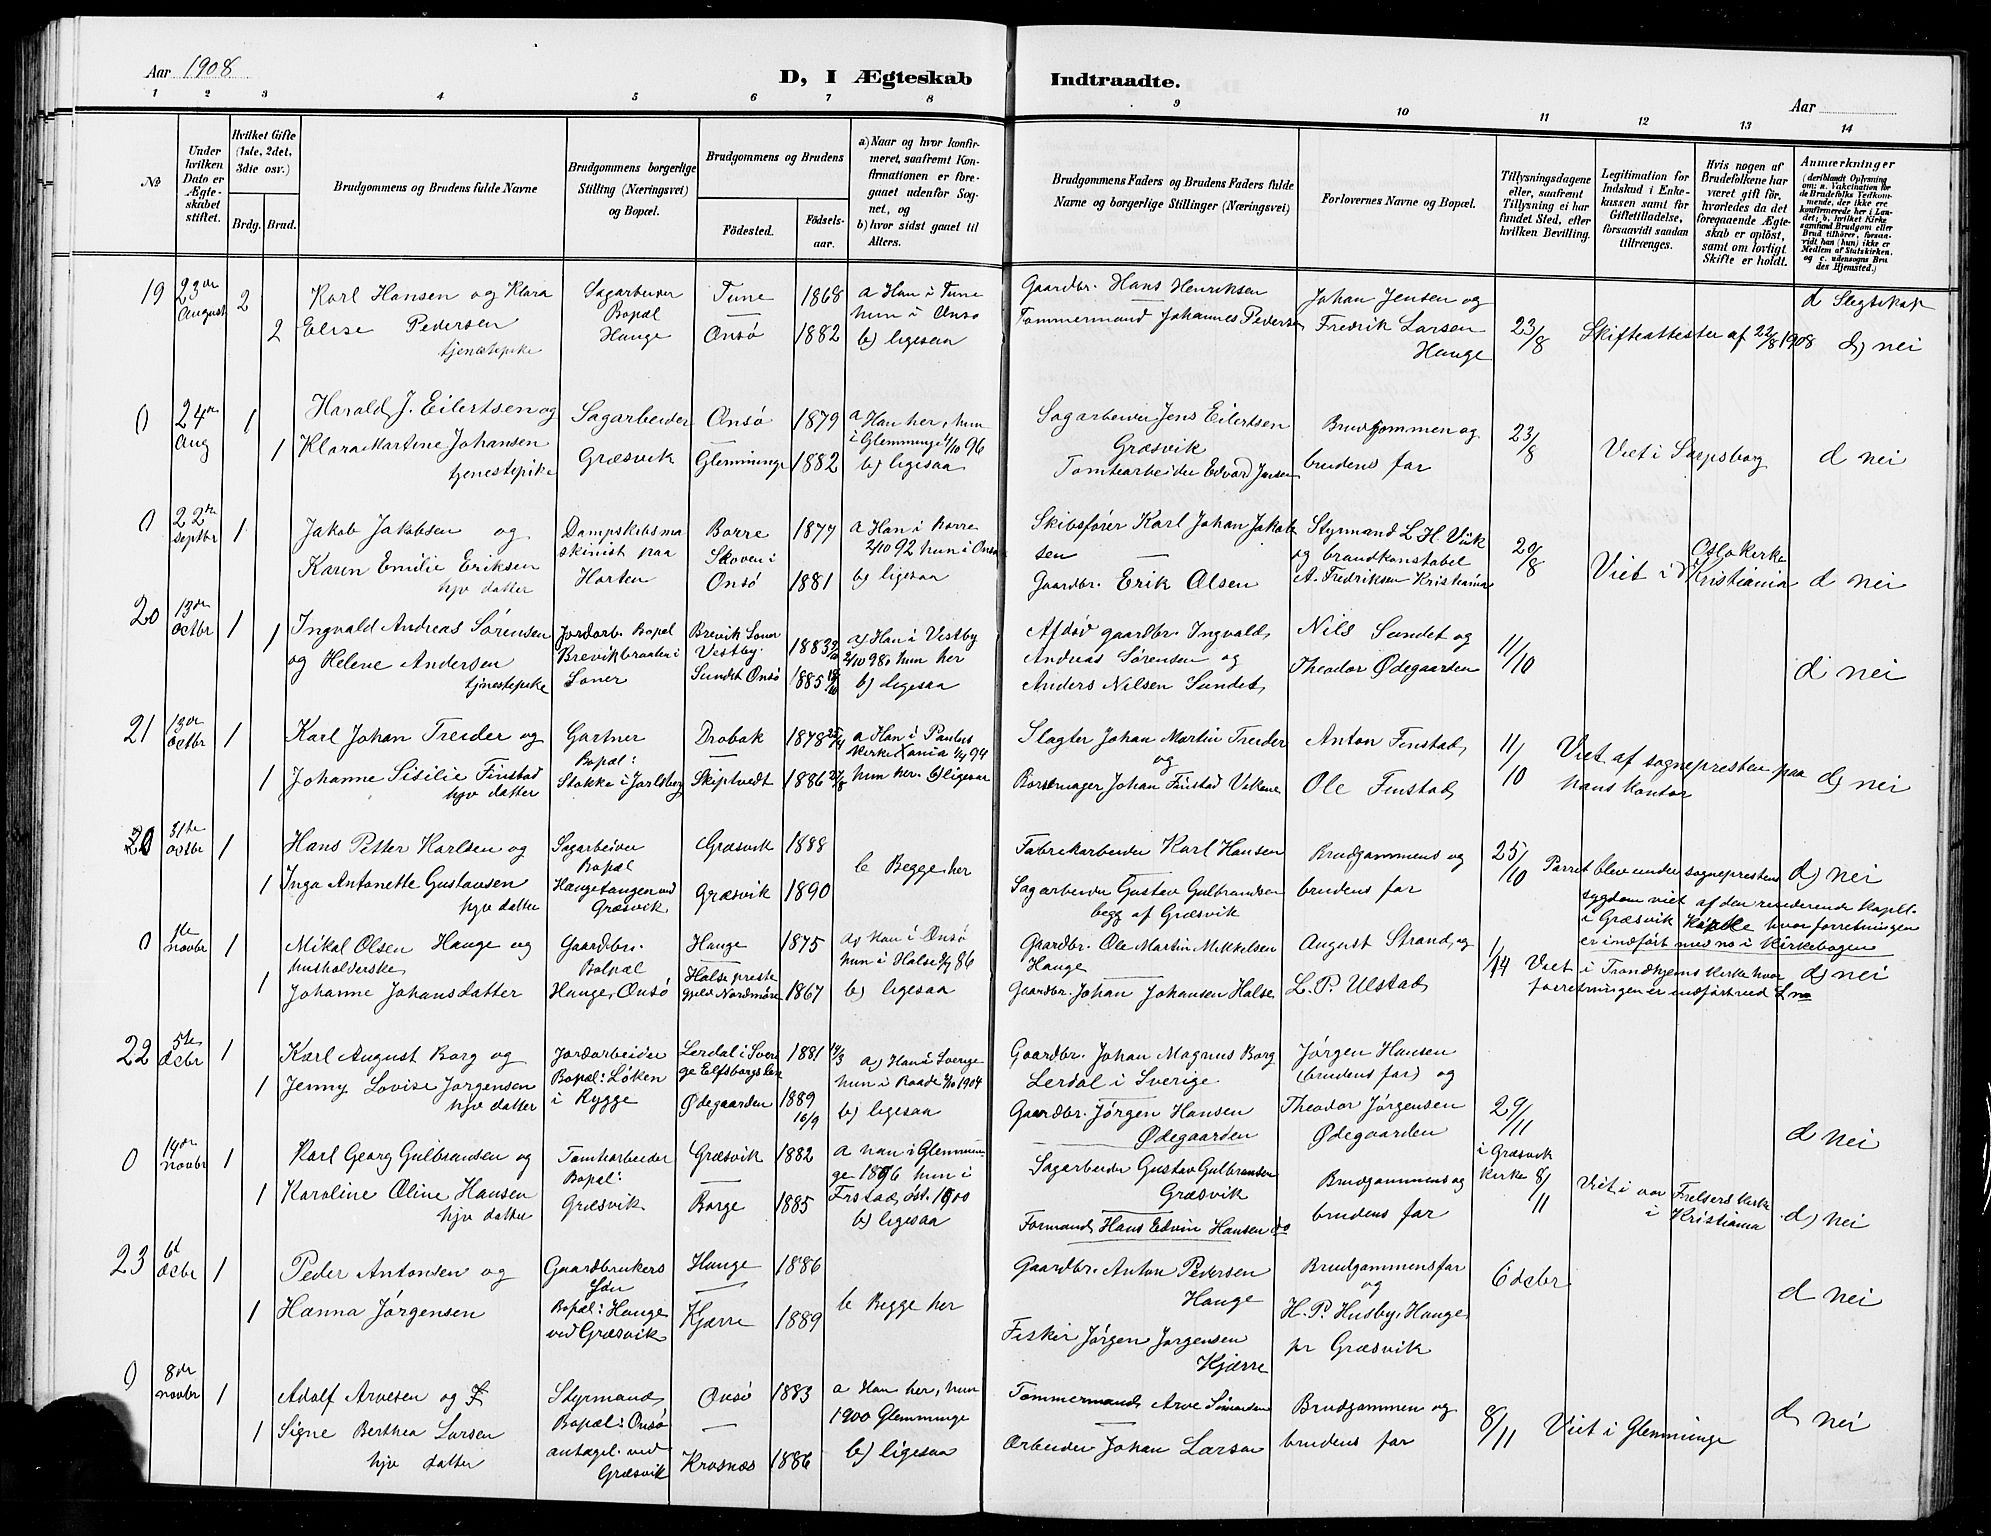 Aar 1908
D, I Ægteskab Indtraadte.
Aar
1 2 3 4 5 6 7 8 9 10 11 12 13 14
No
Under hvilken Dato er Ægteskabet stiftet.
Hvilket Gifte (1ste, 2det, 3die osv.)
Brdg. Brud.
Brudgommens og Brudens fulde Navne
Brudgommens borgerlige Stilling (Næringsvei) og Bopæl.
Brudgommens og Brudens
Fødested. Fødselsaar.
a) Naar og hvor konfirmeret, saafremt Konfirmationen er foregaaet udenfor Sognet, og
b) hvor sidst gaaet til Alters.
Brudgommens Faders og Brudens Faders fulde Navne og borgerlige Stillinger (Næringsvei)
Forlovernes Navne og Bopæl.
Tillysningsdagene eller, saafremt Tillysning ei har fundet Sted, efter hvilken Bevilling.
Legitimation for Indskud i Enkekassen samt for Giftetilladelse, forsaavidt saadan tiltrænges.
Hvis nogen af Brudefolkene har været gift før, hvorledes da det foregaaende Ægteskab er opløst, samt om lovligt Skifte er holdt.
Anmærkninger (deriblandt Oplysning om: a. Vakcination for de Brudefolks Vedkommende, der ikke ere konfirmerede her i Landet; b. hvilket Kirkesamfund Brudgom eller Brud tilhører, forsaavidt han (hun) ikke er Medlem af Statskirken. og c. udensogns Brudes Hjemsted.)
19 23de August 2 Karl Hansen og Klara Sagarbeider Tune 1868 a Han i Tune Gaardbr. Hans Henriksen Johan Jensen og d Slegtskap
2 Elise Pedersen Bopæl Hauge Onsø 1882 hun i Onsø Tømmermand Johannes Pedersen Fredrik Larsen 23/8 Skifteattester af 22/8 1908 d) nei
tjenestepike b) ligesaa Hauge
0 24de Aug 1 Harald J. Eilertsen og Sagarbeider Onsø 1879 a Han her, hun Sagarbeider Jens Eilertsen Brudgommen og 23/8
1 Klara Martine Johansen Græsvik Glemminge 1882 i Glemminge 4/10 96 Græsvik brudens far Viet i Sarpsborg d nei
tjenestepike b) ligesaa Tomtearbeider Edvard Jansen
0 22de septbr 1 Jakob Jakobsen og Dampskibsma Borre 1877 a Han i Borre Skibsfører Karl Johan Jakob Styrmand L H Viik 20/8
Karen Emilie Eriksen skinist paa Skoven i 2/10 92 hun i Onsø sen og brandkonstabel Viet i Oslo kirke
hjv datter Horten Onsø 1881 b) ligesaa Gaardbr. Erik Olsen A. Fredriksen Kristiania Kristiania d nei
20 13de octbr 1 1 Ingvald Andreas Sørensen Jordarb. Bopæl Brevik Soner 1883 a) Han i Vestby Afdød gaardbr. Ingvald Nils Sundet og 11/10
og Helene Andersen Brevikbraaten i Vestby. 2/10 98 hun her Andreas Sørensen og Theodor Ødegaarden
tjenestepike Soner Sundet Onsø 1885 b) ligesaa Anders Nilsen Sundet d nei
21 13de octbr 1 Karl Johan Treider og Gartner Drøbak 1878 a Han i Paulus Slagter Johan Martin Treider Anton Finstad 11/10 Viet af sognepresten paa
1 Johanne Sisilie Finstad Bopæl: Stokke i Jarlsberg Skiptvedt 1886 kirke Xania 94 og Ole Finstad hans kontor d) nei
hjv datter hun her. b) ligesaa Johan Finstad
20 31te octbr 1 Hans Petter Karlsen og Sagarbeider Græsvik 1888 Fabrikarbeider Karl Hansen Brudgommens og 25/10 Parret blev under sogneprestens d) nei
1 Inga Antonette Gustavsen Bopæl Haugetangen ved Græsvik 1890 b Begge her Sagarbeider Gustav Gulbrandsen brudens far sygdom viet af den residerende kapell.
hjv datter Græsvik begg af Græsvik i Græsvik Kapelle hvor forretningen
er indført med no i kirkebogen
0 1te novbr 1 Mikal Olsen Hauge og Gaardbr. Hauge 1875 a) han i Onsø Gaardbr. Ole Martin Mikkelsen August Strand og 1/14 Viet i Trondhjems kirke hvor d) nei
husholderske Bolpæl Halse preste hun i Halse 86 Hauge forretningen er indført ved
1 Johanne Johansdatter Hauge, Onsø gjeld Nordmøre 1867 b) ligesaa Gaardbr. Johan Johansen Halse L. P. Ulstad
22 5te dcbr 1 Karl August Borg og Jordarbeider Lerdal i Sveri 1881 14/3 a) Han i Sverige Gaardbr. Johan Magnus Borg Jørgen Hansen
1 Jenny Lovise Jørgensen Bopæl: Løken ge Elfsborgs Len hun i Raade 1904 Lerdal i Sverige (brudens far) og
hjv datter i Rygge Ødegaarden 1889 16/9 b) ligesaa Gaardbr. Jørgen Hansen Theodor Jørgensen 29/11
Ødegaarden Ødegaarden d nei
0 14de novbr 1 Karl Georg Gulbransen og Tomtearbeider Græsvik 1882 a han i Glemmin Sagarbeider Gustav Gulbransen Brudgommens og i Græsvik kirke 8/11 Viet i vor Frelsers kirke
1 Karoline Oline Hansen Bopæl: Græsvik Borge 1885 ge 1896 hun i Græsvik brudens far i Kristiania d) nei
hjv datter Frstad øst. 1900 Formand Hans Edvin Hansen do
b) ligesaa
23 6d dcbr 1 Peder Antonsen og Gaardbrukers Hauge 1886 Gaardbr. Anton Pedersen Brudgommens far 6 dcbr
1 Hanna Jørgensen Søn b Begge her Hauge og d nei
Bopæl: Hauge Kjærre 1889 Fisker Jørgen Jørgensen H. P. Husby, Hauge
ved Græsvik Kjærre pr Græsvik
0 8de novbr 1 Adolf Arvesen og Styrmand Onsø 1883 a Han her, hun Tømmermand Arve Simonsen Brudgommen og 8/11 Viet i Glemminge d, nei
1 Signe Berthea Larsen Bopæl: Onsø 1900 Glemminge
hjv datter antagel. ved Græsvik Krosnæs 1886 b) ligesaa Arbeider Johan Larsen brudens far